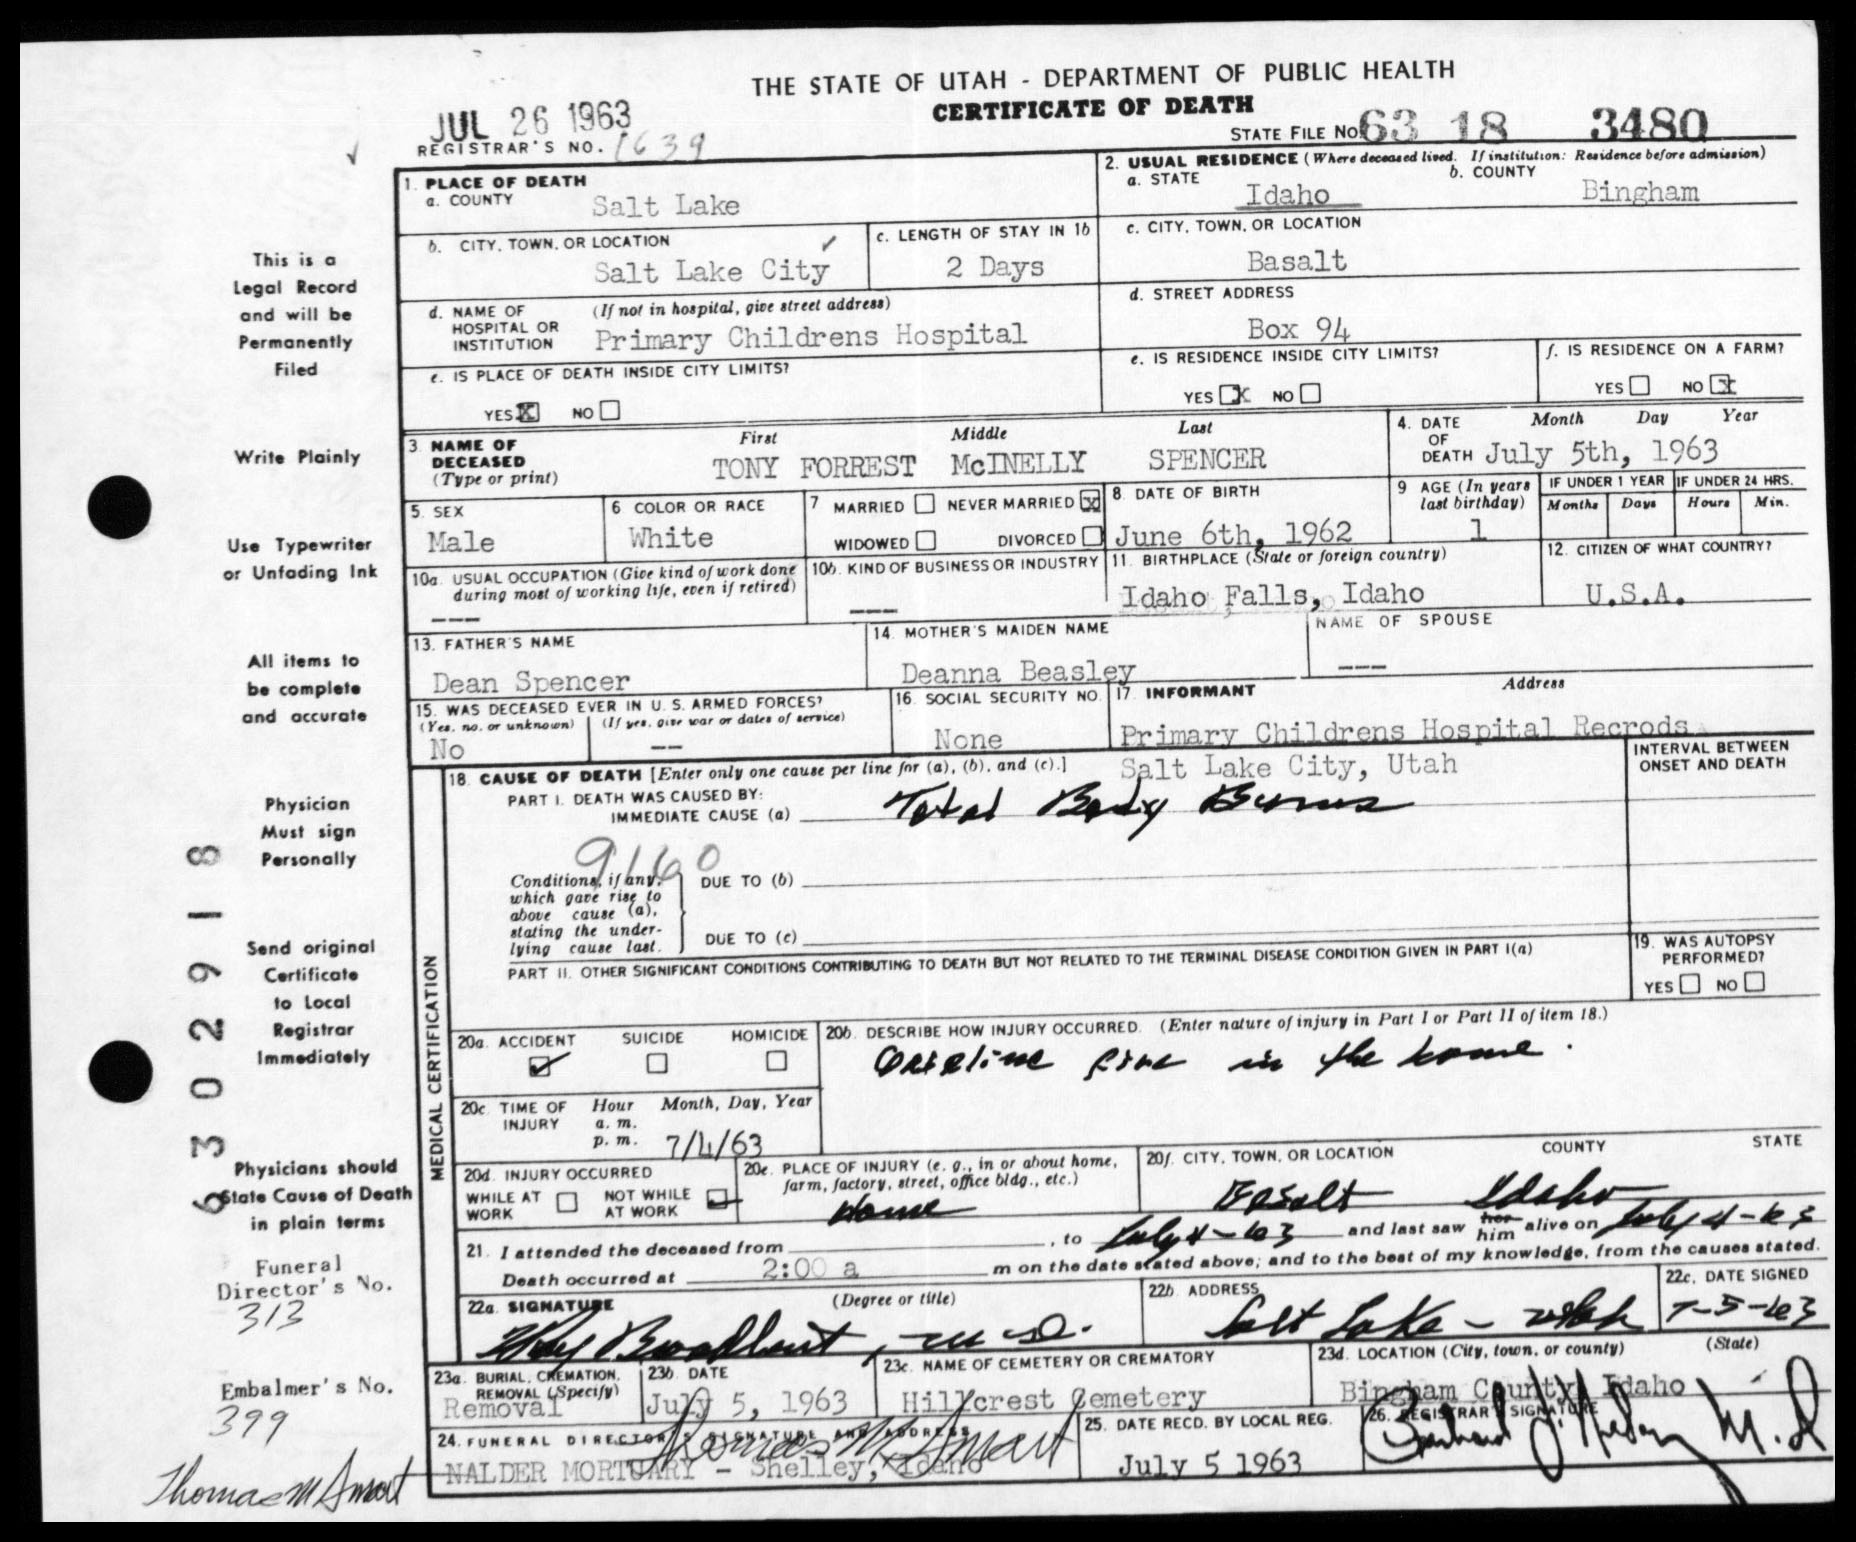 THE STATE OF UTAH - DEPARTMENT OF PUBLIC HEALTH
CERTIFICATE OF DEATH
JUL 26 1963
REGISTRAR'S NO. 1639
STATE FILE NO. 63 18 3480
1. PLACE OF DEATH
a. COUNTY Salt Lake
2. USUAL RESIDENCE (Where deceased lived. If institution: Residence before admission)
a. STATE Idaho b. COUNTY Bingham
b. CITY, TOWN, OR LOCATION Salt Lake City
c. LENGTH OF STAY IN 1b 2 Days
c. CITY, TOWN, OR LOCATION Basalt
d. NAME OF HOSPITAL OR INSTITUTION (If not in hospital, give street address)
Primary Childrens Hospital
d. STREET ADDRESS
Box 94
e. IS PLACE OF DEATH INSIDE CITY LIMITS?
YES X NO
e. IS RESIDENCE INSIDE CITY LIMITS?
YES X NO
f. IS RESIDENCE ON A FARM?
YES NO X
3. NAME OF DECEASED (Type or print)
First Middle Last
TONY FORREST McINELLY SPENCER
4. DATE OF DEATH Month Day Year
July 5th, 1963
5. SEX
Male
6 COLOR OR RACE
White
7 MARRIED NEVER MARRIED X
WIDOWED DIVORCED
8. DATE OF BIRTH
June 6th, 1962
9 AGE (In years last birthday)
1
IF UNDER 1 YEAR
Months Days
IF UNDER 24 HRS.
Hours Min.
10a. USUAL OCCUPATION (Give kind of work done during most of working life, even if retired)
---
10b. KIND OF BUSINESS OR INDUSTRY
---
11. BIRTHPLACE (State or foreign country)
Idaho Falls, Idaho
12. CITIZEN OF WHAT COUNTRY?
U.S.A.
13. FATHER'S NAME
Dean Spencer
14. MOTHER'S MAIDEN NAME
Deanna Beasley
NAME OF SPOUSE
---
15. WAS DECEASED EVER IN U. S. ARMED FORCES?
(Yes, no, or unknown) (If yes, give war or dates of service)
No --
16. SOCIAL SECURITY NO.
None
17. INFORMANT Address
Primary Childrens Hospital Recrods
Salt Lake City, Utah
MEDICAL CERTIFICATION
18. CAUSE OF DEATH [Enter only one cause per line for (a), (b), and (c).]
INTERVAL BETWEEN ONSET AND DEATH
PART I. DEATH WAS CAUSED BY:
IMMEDIATE CAUSE (a) Total Body Burns
9160
Conditions, if any, which gave rise to above cause (a), stating the underlying cause last.
DUE TO (b)
DUE TO (c)
PART II. OTHER SIGNIFICANT CONDITIONS CONTRIBUTING TO DEATH BUT NOT RELATED TO THE TERMINAL DISEASE CONDITION GIVEN IN PART I(a)
19. WAS AUTOPSY PERFORMED?
YES NO
20a. ACCIDENT SUICIDE HOMICIDE
20b. DESCRIBE HOW INJURY OCCURRED. (Enter nature of injury in Part I or Part II of item 18.)
fire in the home.
20c. TIME OF INJURY Hour Month, Day, Year
a. m.
p. m. 7/4/63
20d. INJURY OCCURRED
WHILE AT WORK NOT WHILE AT WORK
20e. PLACE OF INJURY (e. g., in or about home, farm, factory, street, office bldg., etc.)
Home
20f. CITY, TOWN, OR LOCATION COUNTY STATE
Basalt Idaho
21. I attended the deceased from , to July 4-63 and last saw her him alive on July 4-63
Death occurred at 2:00 a m on the date stated above; and to the best of my knowledge, from the causes stated.
22a. SIGNATURE (Degree or title)
Broadbent, M.D.
22b. ADDRESS
Salt Lake - Utah
22c. DATE SIGNED
7-5-63
23a. BURIAL, CREMATION, REMOVAL (Specify)
Removal
23b. DATE
July 5, 1963
23c. NAME OF CEMETERY OR CREMATORY
Hillcrest Cemetery
23d. LOCATION (City, town, or county) (State)
Bingham County, Idaho
24. FUNERAL DIRECTOR'S SIGNATURE AND ADDRESS
Thomas M Smart
NALDER MORTUARY - Shelley, Idaho
25. DATE RECD. BY LOCAL REG.
July 5 1963
26. REGISTRAR'S SIGNATURE
M.D
This is a
Legal Record
and will be
Permanently
Filed
Write Plainly
Use Typewriter
or Unfading Ink
All items to
be complete
and accurate
Physician
Must sign
Personally
Send original
Certificate
to Local
Registrar
Immediately
Physicians should
State Cause of Death
in plain terms
Funeral
Director's No.
313
Embalmer's No.
399
Thomas M Smart
6302918